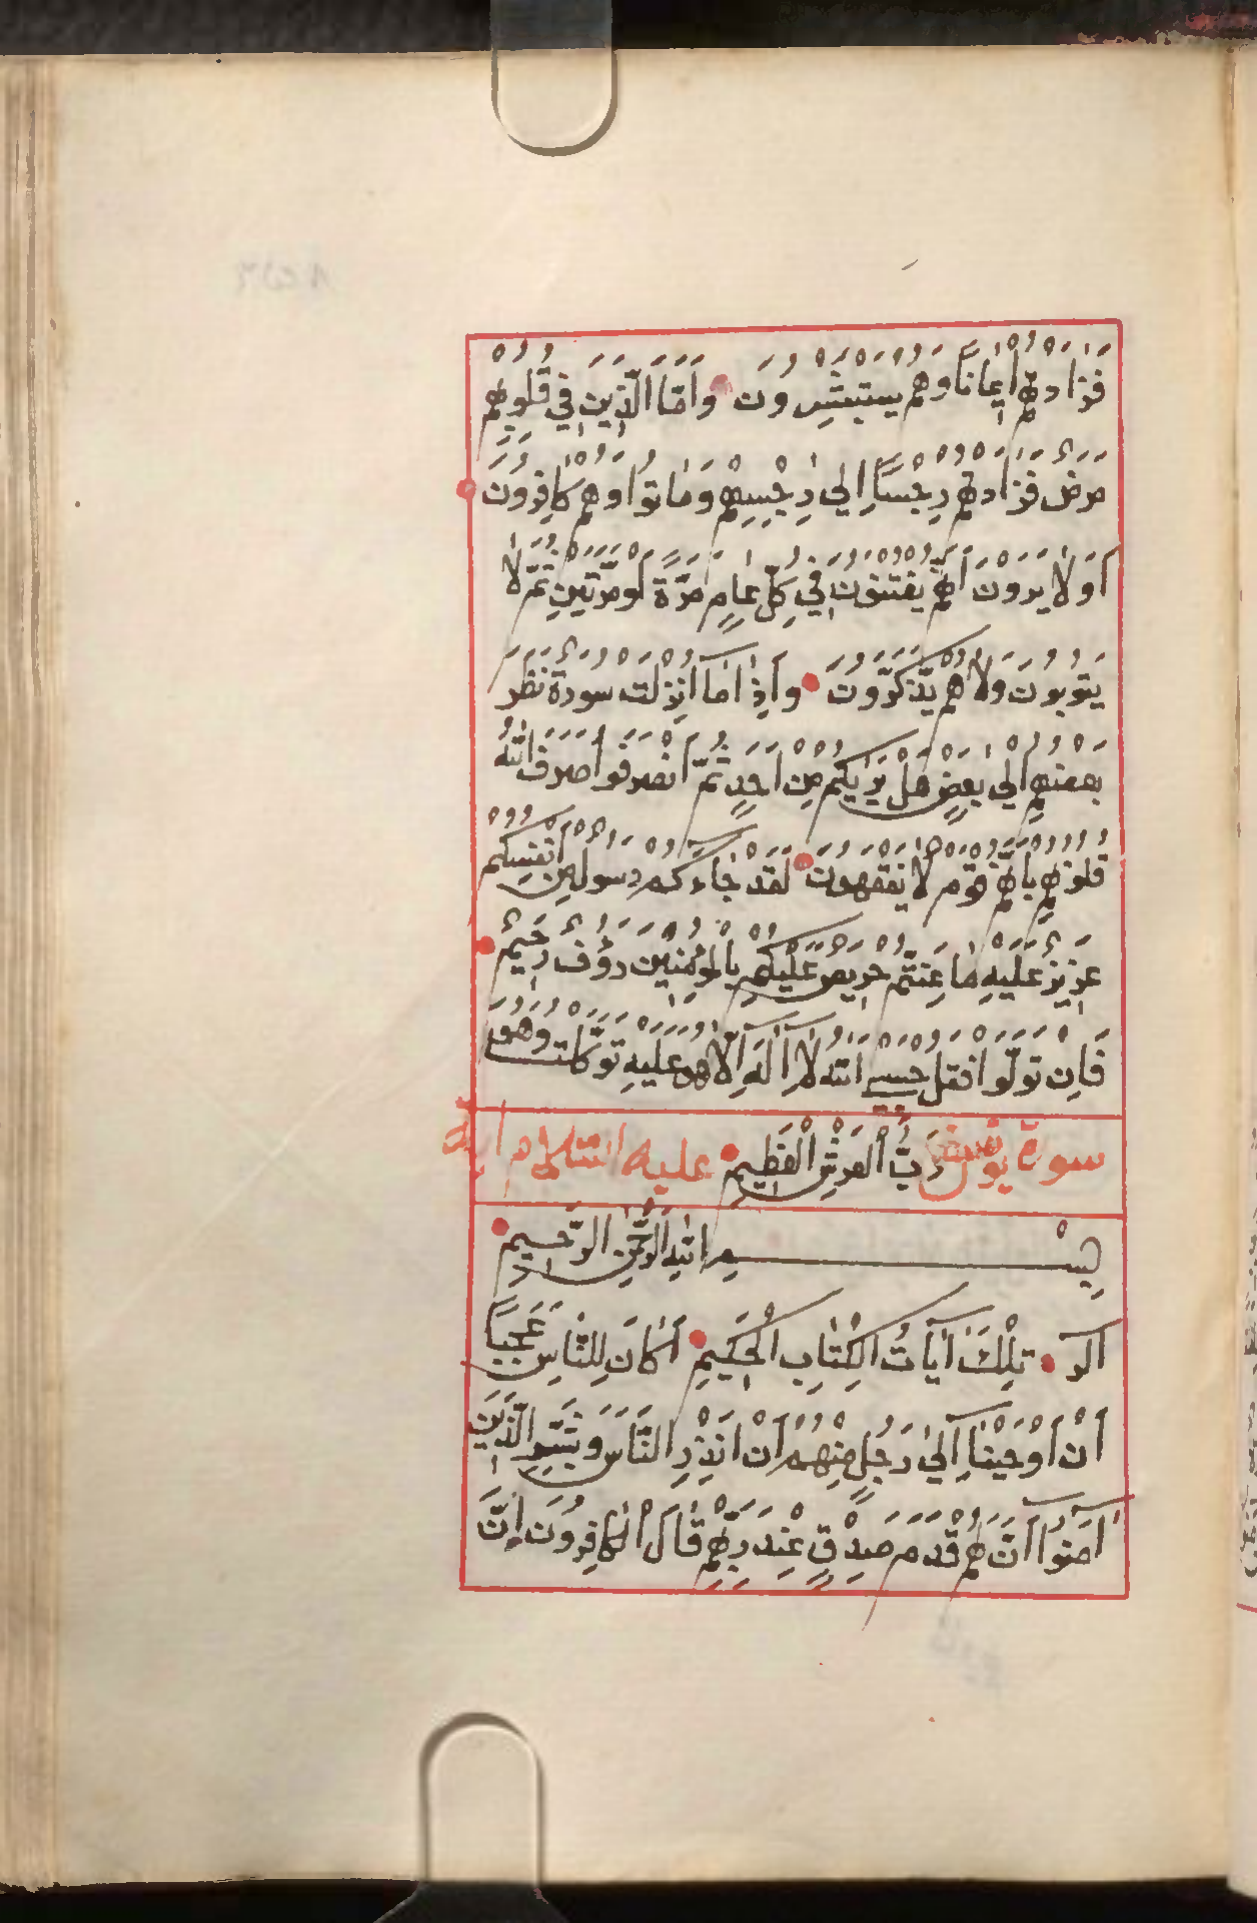 فَزَادَتْهُمْ اِيمَانًا وَهُمْ يَسْتَبْشِرُونَ وَاَمَّا الَّذِينَ فِي قُلُوبِهِمْ
مَرَضٌ فَزَادَتْهُمْ رِجْسًا اِلَى رِجْسِهِمْ وَمَاتُوا وَهُمْ كَافِرُونَ
اَوَلَا يَرَوْنَ اَنَّهُمْ يُفْتَنُونَ فِي كُلِّ عَامٍ مَرَّةً اَوْ مَرَّتَيْنِ ثُمَّ لَا
يَتُوبُونَ وَلَا هُمْ يَذَّكَّرُونَ وَاِذَا مَا اُنْزِلَتْ سُورَةٌ نَظَرَ
بَعْضُهُمْ اِلَى بَعْضٍ هَلْ يَرَيكُمْ مِنْ اَحَدٍ ثُمَّ انْصَرَفُوا صَرَفَ اللّٰهُ
قُلُوبَهُمْ بِاَنَّهُمْ قَوْمٌ لَا يَفْقَهُونَ لَقَدْ جَاءَكُمْ رَسُولٌ مِنْ اَنْفُسِكُمْ
عَزِيزٌ عَلَيْهِ مَا عَنِتُّمْ حَرِيصٌ عَلَيْكُمْ بِالْمُؤْمِنِينَ رَؤُفٌ رَحِيمٌ
فَاِنْ تَوَلَّوْا فَقُلْ حَسْبِيَ اللّٰهُ لَا اِلَهَ اِلَّا هُوَ عَلَيْهِ تَوَكَّلْتُ وَهُوَ
سورة يونس رَبُّ الْعَرْشِ الْعَظِيمِ عليه السّلام اية
بِسْمِ اللّٰهِ الرَّحْمٰنِ الرَّحِيمِ
الر تِلْكَ اٰيَاتُ الْكِتَابِ الْحَكِيمِ اَكَانَ لِلنَّاسِ عَجَبًا
اَنْ اَوْحَيْنَا اِلَى رَجُلٍ مِنْهُمْ اَنْ اَنْذِرِ النَّاسَ وَبَشِّرِ الَّذِينَ
اٰمَنُوا اَنَّ لَهُمْ قَدَمَ صِدْقٍ عِنْدَ رَبِّهِمْ قَالَ الْكَافِرُونَ اِنَّ